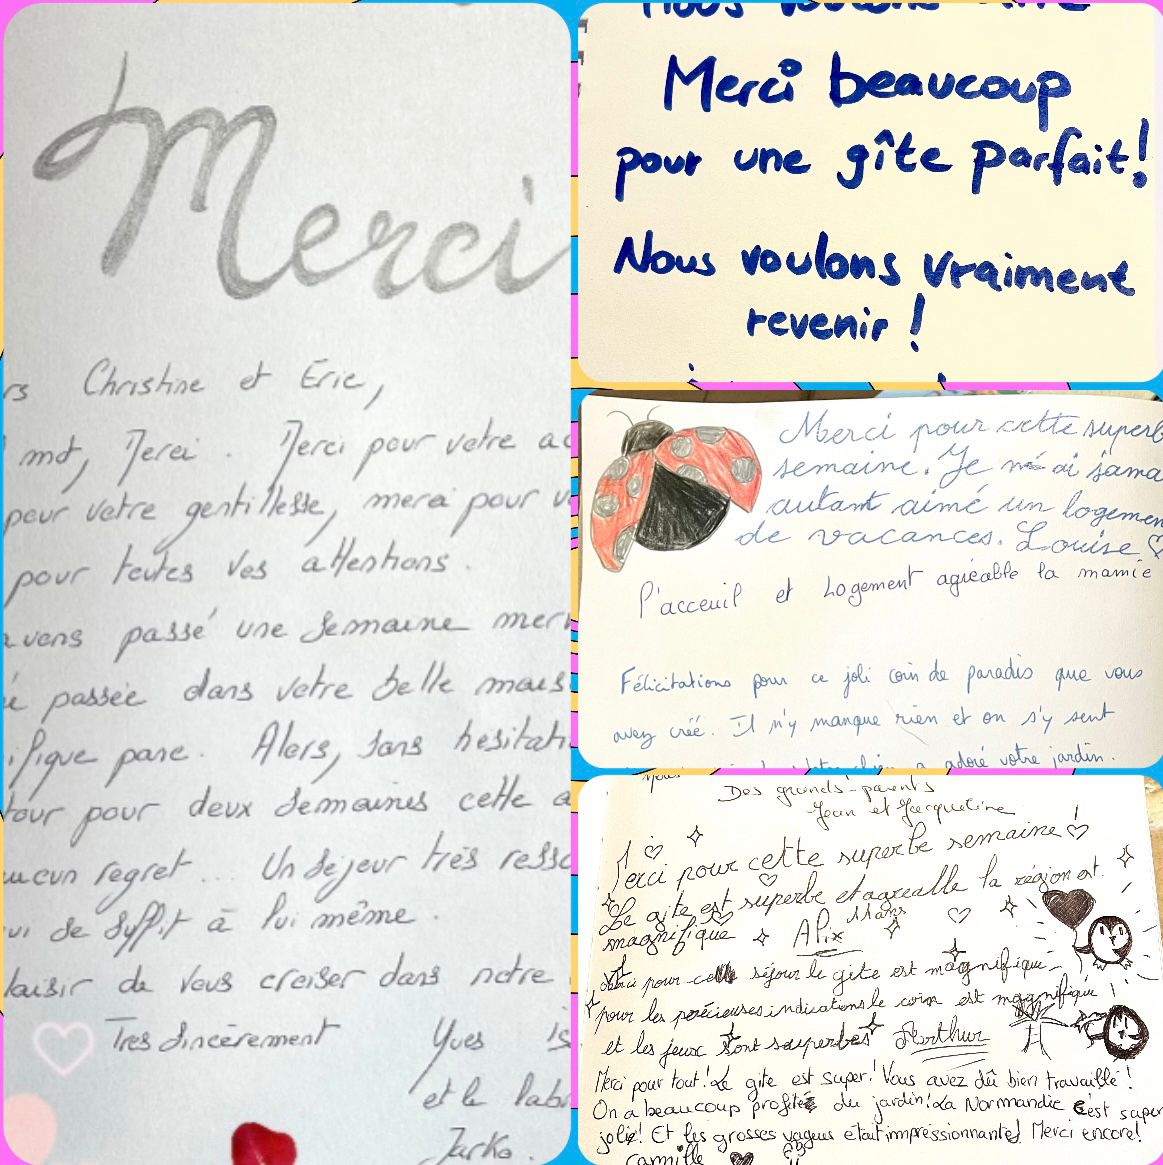 Merci
rs Christine et Eric,
mot, Merci. Merci pour votre ac
pour votre gentillesse, merci pour v
pour toutes vos attentions.
avons passé une semaine mer
é passée dans votre belle mais
ifique parc. Alors, sans hesitati
tour pour deux semaines cette a
ucun regret... Un séjour très resso
ui se suffit à lui même.
laisir de vous croiser dans notre
Très sincèrement Yves Is
et le labr
Jarko.
Nous voulons dire
Merci beaucoup
pour une gîte parfait!
Nous voulons vraiment
revenir!
Merci pour cette superb
semaine. Je n'ai jama
autant aimé un logemen
de vacances. Louise
l'acceuil et logement agréable la mamie
Félicitations pour ce joli coin de paradis que vous
avez créé. Il n'y manque rien et on s'y sent
a adoré votre jardin.
Des grands-parents
Jean et Jacqueline
Merci pour cette superbe semaine!
Le gite est superbe et agreable la région est
magnifique Alix 11 ans
Merci pour cette séjour le gite est magnifique
pour les précieuses indications le coin est magnifique
et les jeux sont superbes Arthur
Merci pour tout! Le gite est super! Vous avez dû bien travaillé!
On a beaucoup profité du jardin! La Normandie c'est super
joli! Et les grosses vagues etait impressionnante! Merci encore!
Camille